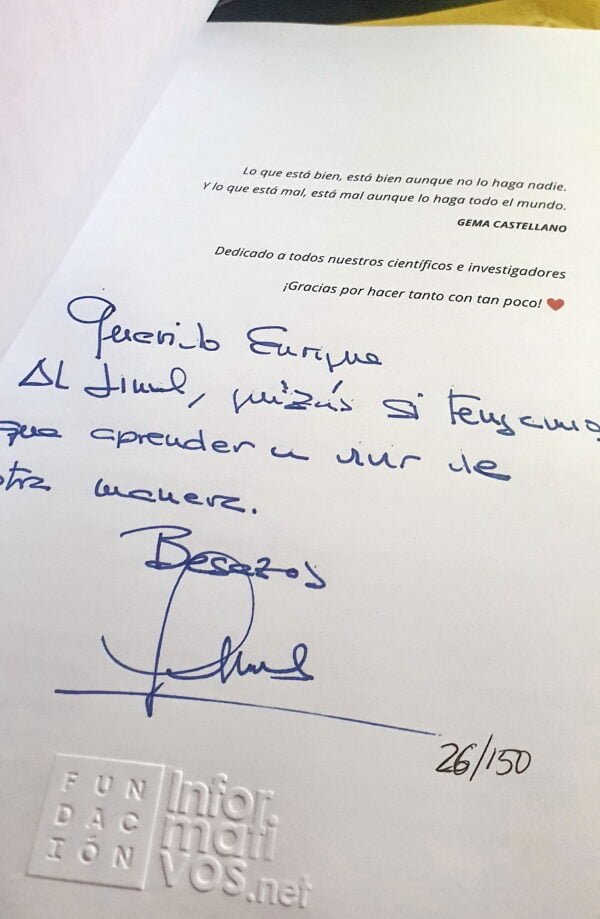 Lo que está bien, está bien aunque no lo haga nadie.
Y lo que está mal, está mal aunque lo haga todo el mundo.
GEMA CASTELLANO
Dedicado a todos nuestros científicos e investigadores
¡Gracias por hacer tanto con tan poco! ❤
Querido Enrique
Al final, quizás si tengamos
que aprender a vivir de
otra manera.
Besazos
26/150
FUN
DAC
IÓN
Infor.
mati
vos.net